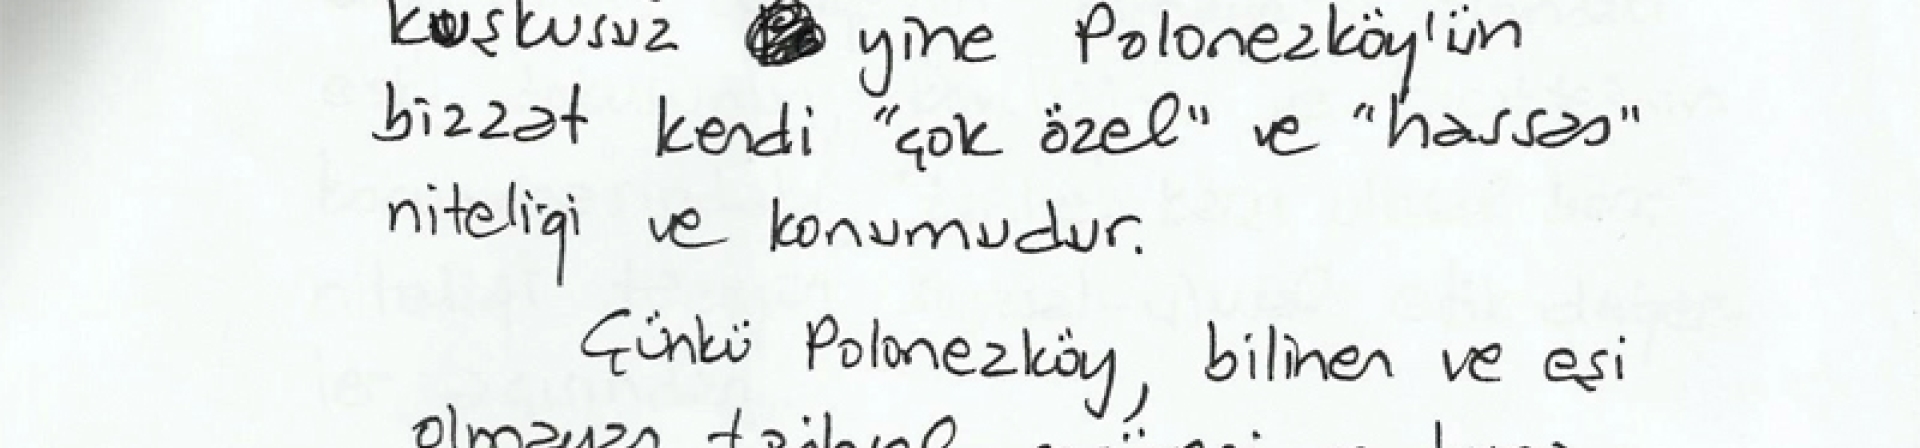 kuşkusuz yine Polonezköy'ün
bizzat kendi "çok özel" ve "hassas"
niteliği ve konumudur.
Çünkü Polonezköy, bilinen ve eşi
olmayan